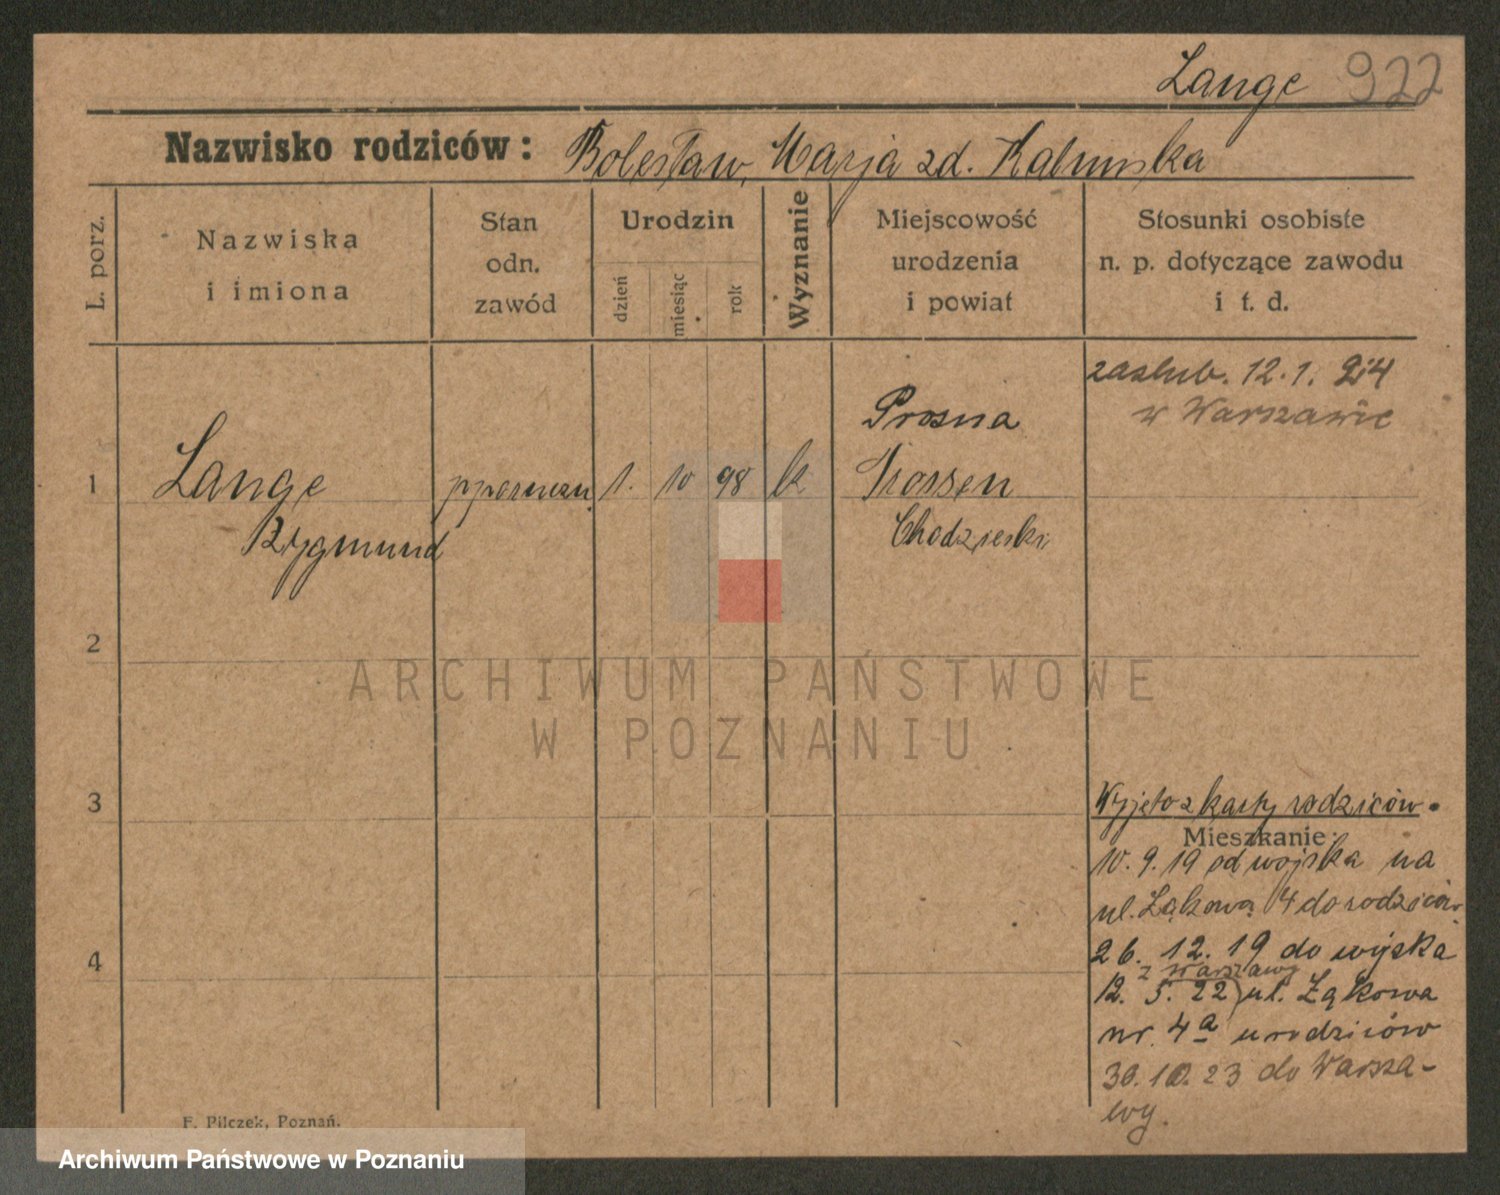 Lange 922
Nazwisko rodziców: Bolesław, Marja zd. Kabuńska
L. porz.
Nazwiska
i imiona
Stan
odn.
zawód
Urodzin
dzień
miesiąc
rok
Wyznanie
Miejscowość
urodzenia
i powiat
Stosunki osobiste
n. p. dotyczące zawodu
i t. d.
zaslub. 12.1. 24
w Warszawie
Prosna
1 Lange 1. 10 98 k
Zygmund
Chodzieski
2
3
Wyjęto z karty rodziców.
Mieszkanie:
10. 9. 19 od wojska na
ul. Łąkową 4 do rodziców
4
26. 12. 19 do wojska
z Warszawy
12. 5. 22 ul. Łąkowa
nr. 4a u rodziców
30. 10. 23 do Warsza-
wy.
F. Pilczek, Poznań.
ARCHIWUM PAŃSTWOWE
W POZNANIU
Archiwum Państwowe w Poznaniu